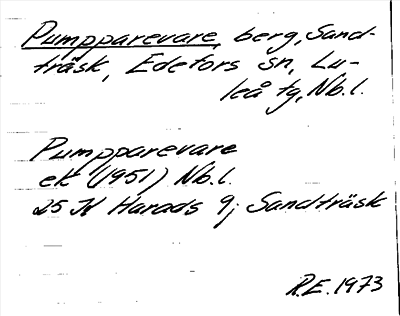 Pumpparevare, berg, Sand-
träsk, Edefors sn, Lu-
leå tg, Nb.l.
Pumpparevare
ek (1951) Nb.l.
25 K Harads 9; Sandträsk
R.E. 1973